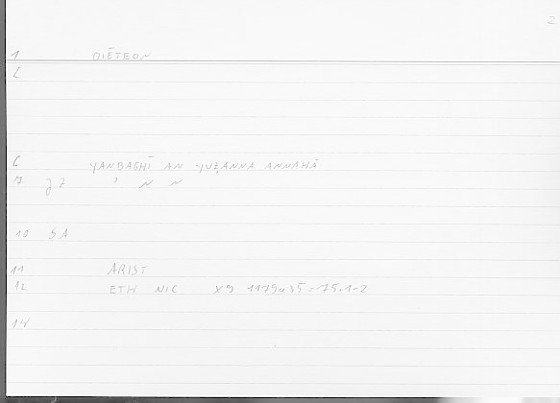 2
1 OIĒTEON
2
6 YANBAGHĪ AN YUẒANNA ANNAHĀ
7 JZ " " "
10 SA
11 ARIST
12 ETH NIC X9 1179a35 = 75.1-2
14